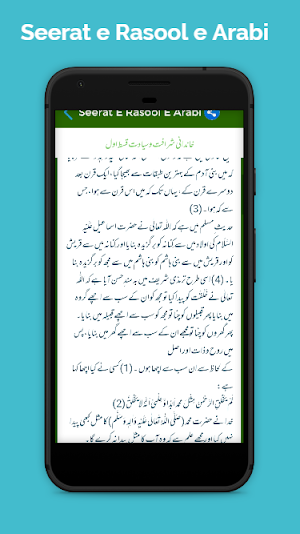 Seerat e Rasool e Arabi
Seerat E Rasool E Arabi
خاندانی شرافت و سیادت قسط اول
کہ میں بنی آدم کے بہترین طبقات سے بھیجا گیا، ایک قرن بعد
دوسرے قرن کے، یہاں تک کہ میں اس قرن سے ہوا، جس
سے کہ ہوا۔ (3)
حدیث مسلم میں ہے کہ اللہ تعالٰی نے حضرت اسماعیل عَلَیْہِ
السَّلَام کی اولاد میں سے کنانہ کو برگزیدہ بنایا اور کنانہ میں سے قریش
کو اور قریش میں سے بنی ہاشم کو بنی ہاشم میں سے مجھ کو برگزیدہ بنا
یا۔ (4) اسی طرح ترمذی شریف میں بہ سند حسن آیا ہے کہ اللہ
تعالٰی نے خلقت کو پیدا کیا تو مجھ کو ان کے سب سے اچھے گروہ
میں بنایا۔ پھر قبیلوں کو چنا تو مجھ کو سب سے اچھے قبیلہ میں بنایا۔
پھر گھروں کو چنا تو مجھے ان کے سب سے اچھے گھر میں بنایا، پس
میں روح و ذات اور اصل
کے لحاظ سے ان سب سے اچھا ہوں۔ (1) کسی نے کیا اچھا کہا
ہے:
لَمْ یَخْلُقِ الرَّحْمٰنُ مِثْلَ مُحَمَّدٍ اَبَدًا وَّعِلْمِیْ اَنَّہٗ لَا یَخْلُقُ (2)
خدا نے حضرت محمد (صَلَّی اللہُ تَعَالٰی عَلَیْہِ وَاٰلِہٖ وَسَلَّم) کا مثل کبھی پیدا
نہیں کیا اور مجھے علم ہے کہ وہ آپ کا مثل پیدا نہ کرے گا۔